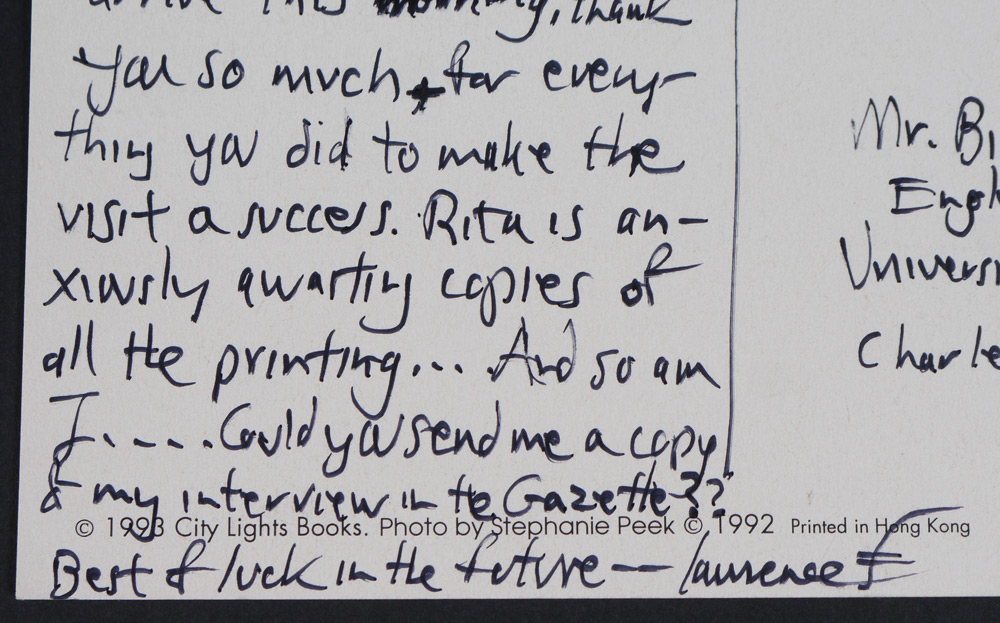 arrive this morning, thank
you so much for every-
thing you did to make the
visit a success. Rita is an-
xiously awaiting copies of
all the printing... And so am
I..... Could you send me a copy
of my interview in the Gazette??
© 1993 City Lights Books. Photo by Stephanie Peek © 1992 Printed in Hong Kong
Best of luck in the future — Lawrence F
Mr. Bi
Engl
Universi
Charle